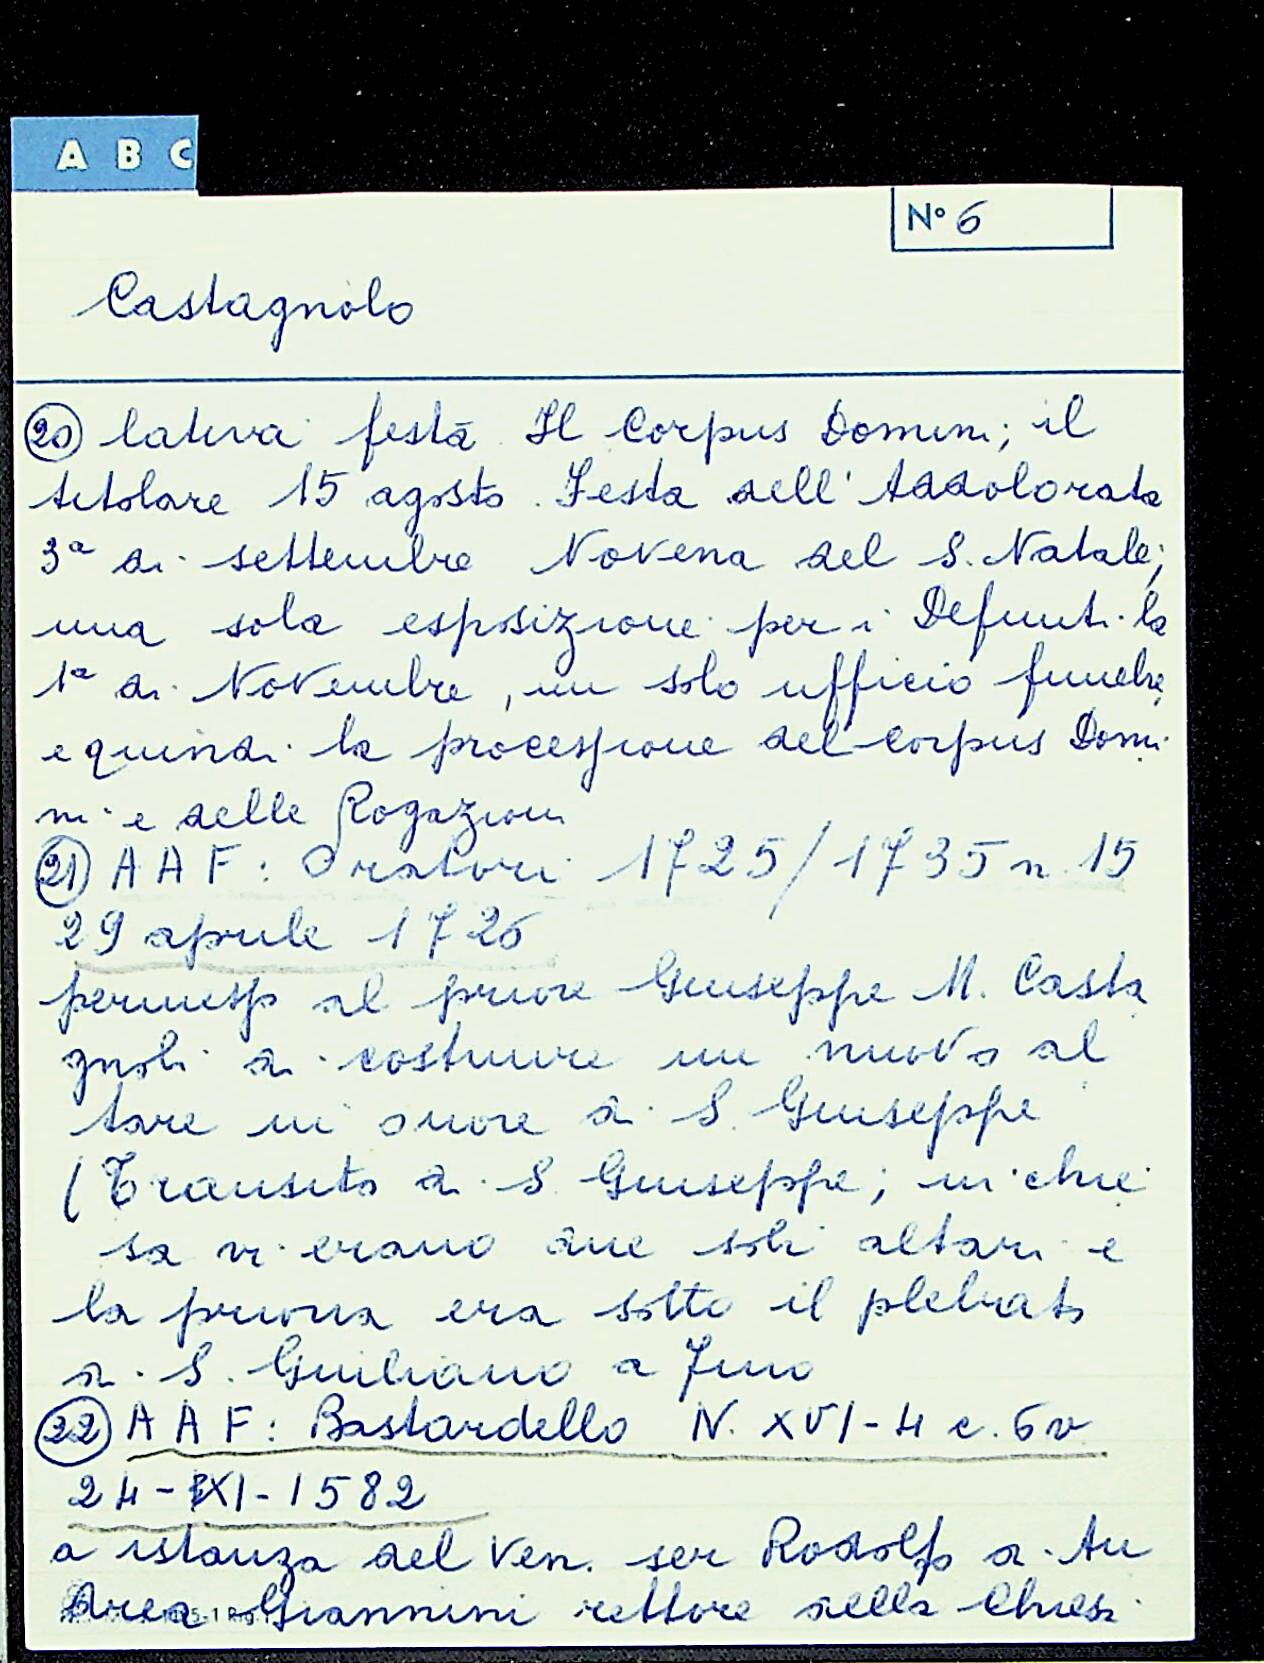 A B C
N° 6
Castagnolo
20 lativa festa Il Corpus Domini; il
titolare 15 agosto. Festa dell'Addolorata
3ª di settembre Novena del S. Natale;
una sola esposizione per i Defunti la
1ª di Novembre, un solo ufficio funebre
e quindi la processione del Corpus Domi
ni e delle Rogazioni
21 AAF: Oratori 1725/1735 n. 15
29 aprile 1726
permesso al priore Giuseppe M. Casta
gnoli di costruire un nuovo al
tare in onore di S. Giuseppe
(Transito di S. Giuseppe; in chie
sa vi erano due soli altari e
la prioria era sotto il plebato
di S. Giuliano a
22 AAF: Bastardello N. XVI-4 c. 6v
24-XI-1582
a istanza del Ven. ser Rodolfo di An
drea Giannini rettore della Chiesa